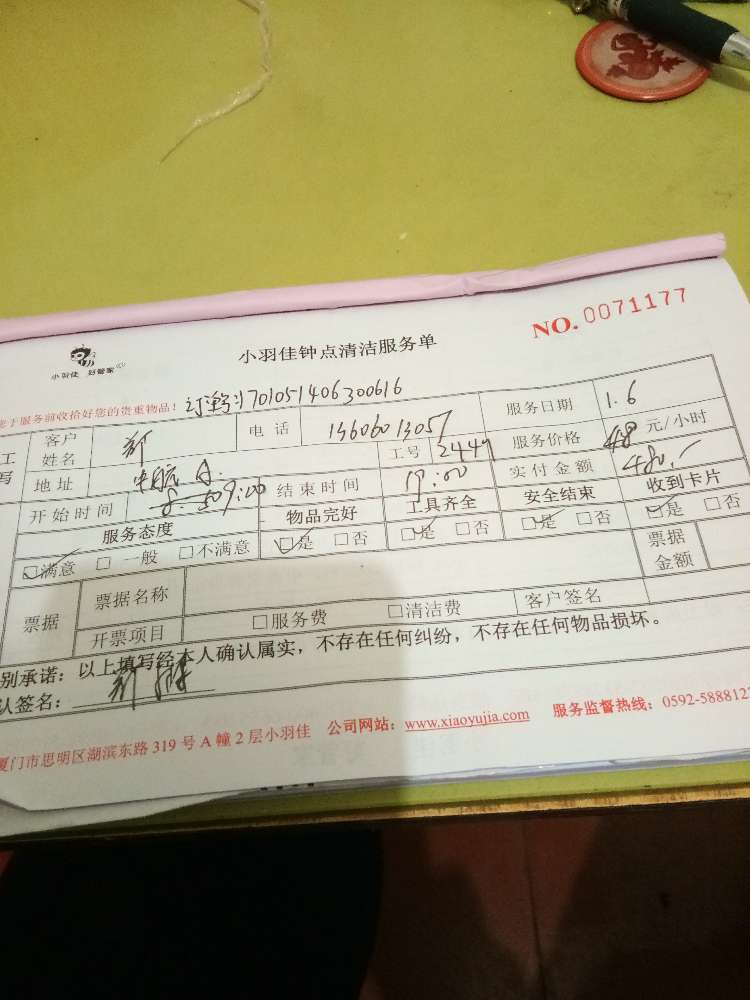 小羽佳 好管家
小羽佳钟点清洁服务单
NO. 0071177
于服务前收拾好您的贵重物品! 订单号:701051406300616
工 客户姓名 电话 13606013057 服务日期 1.6
写 地址 中航 A. 工号 2447 服务价格 48 元/小时
开始时间 9:00 结束时间 19:00 实付金额 480.-
服务态度 物品完好 工具齐全 安全结束 收到卡片
☑满意 □一般 □不满意 ☑是 □否 ☑是 □否 ☑是 □否 ☑是 □否
票据 票据名称 票据金额
开票项目 □服务费 □清洁费 客户签名
别承诺:以上填写经本人确认属实,不存在任何纠纷,不存在任何物品损坏。
认签名:
厦门市思明区湖滨东路 319 号 A 幢 2 层小羽佳 公司网站:www.xiaoyujia.com 服务监督热线:0592-588812